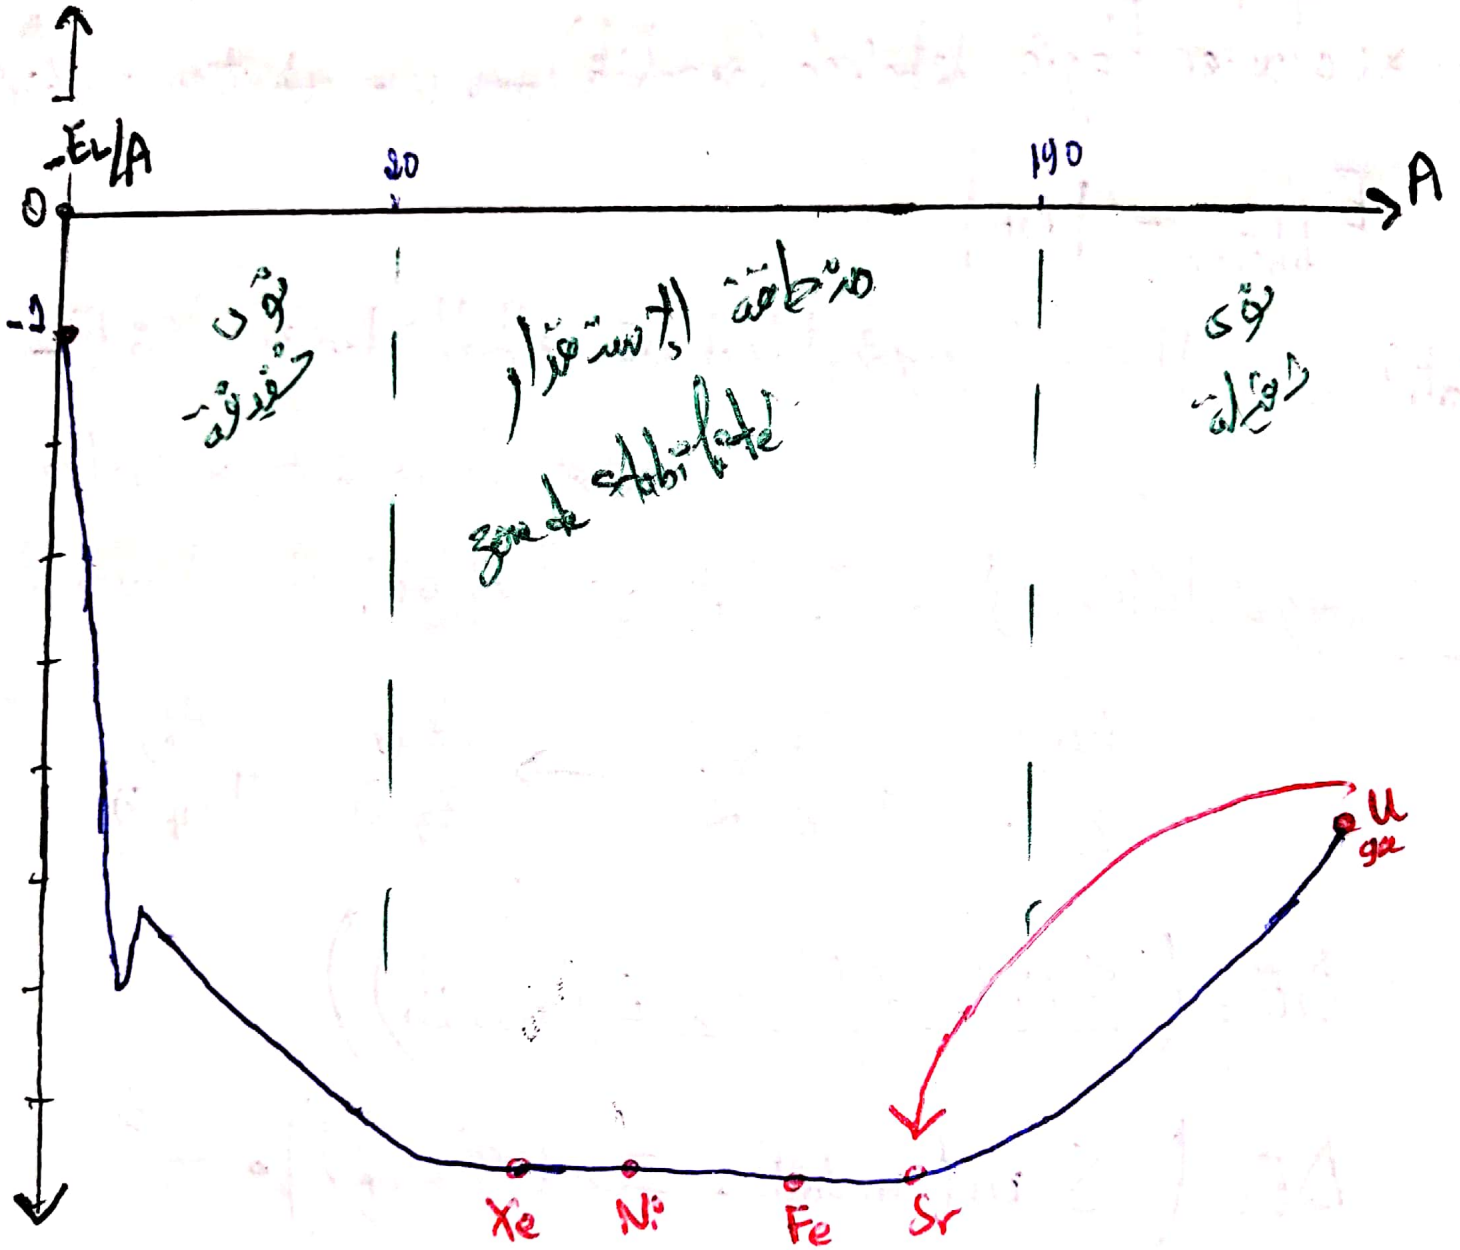 -EL/A
20
190
A
0
-1
نوى
خفيفة
منطقة الاستقرار
zone de stabilité
نوى
ثقيلة
U
92
Xe
Ni
Fe
Sr